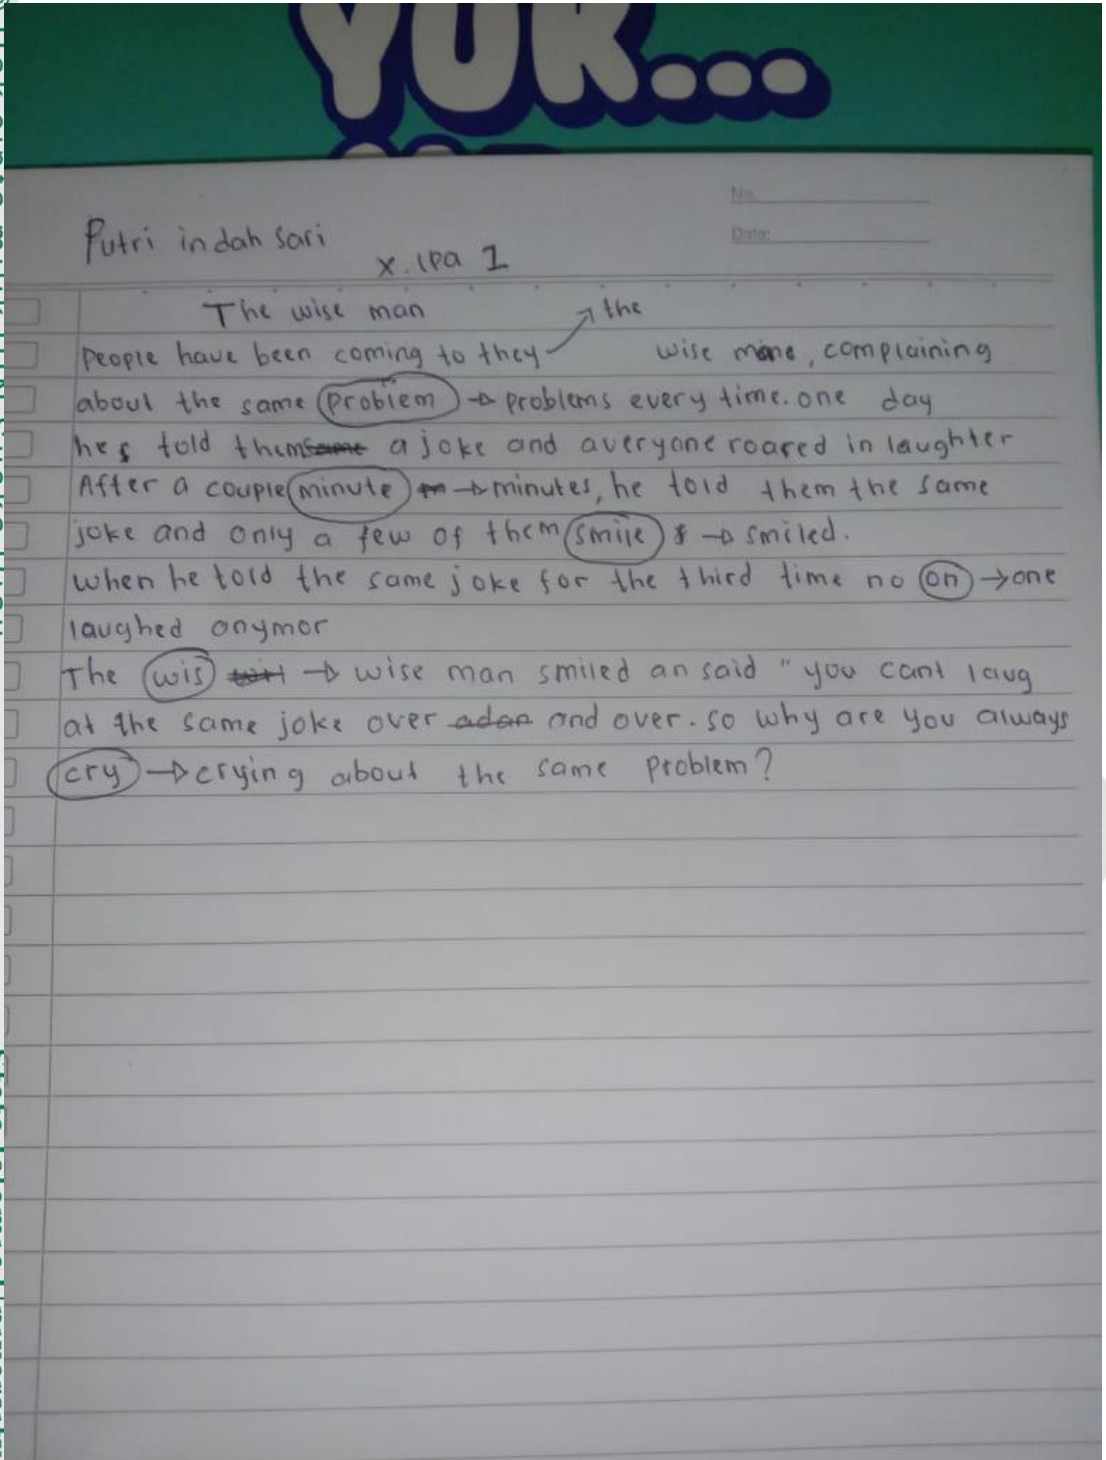 YUK...
No.
Date:
Putri indah sari
X. IPA 1
The wise man
People have been coming to they → the wise mane, complaining
about the same problem → problems every time. one day
hes told them same a joke and averyone roared in laughter
After a couple minute → minutes, he told them the same
joke and only a few of them smile → smiled.
when he told the same joke for the third time no on → one
laughed anymor
The wis → wise man smiled an said "you cant laug
at the same joke over adan and over. so why are you always
cry → crying about the same problem?